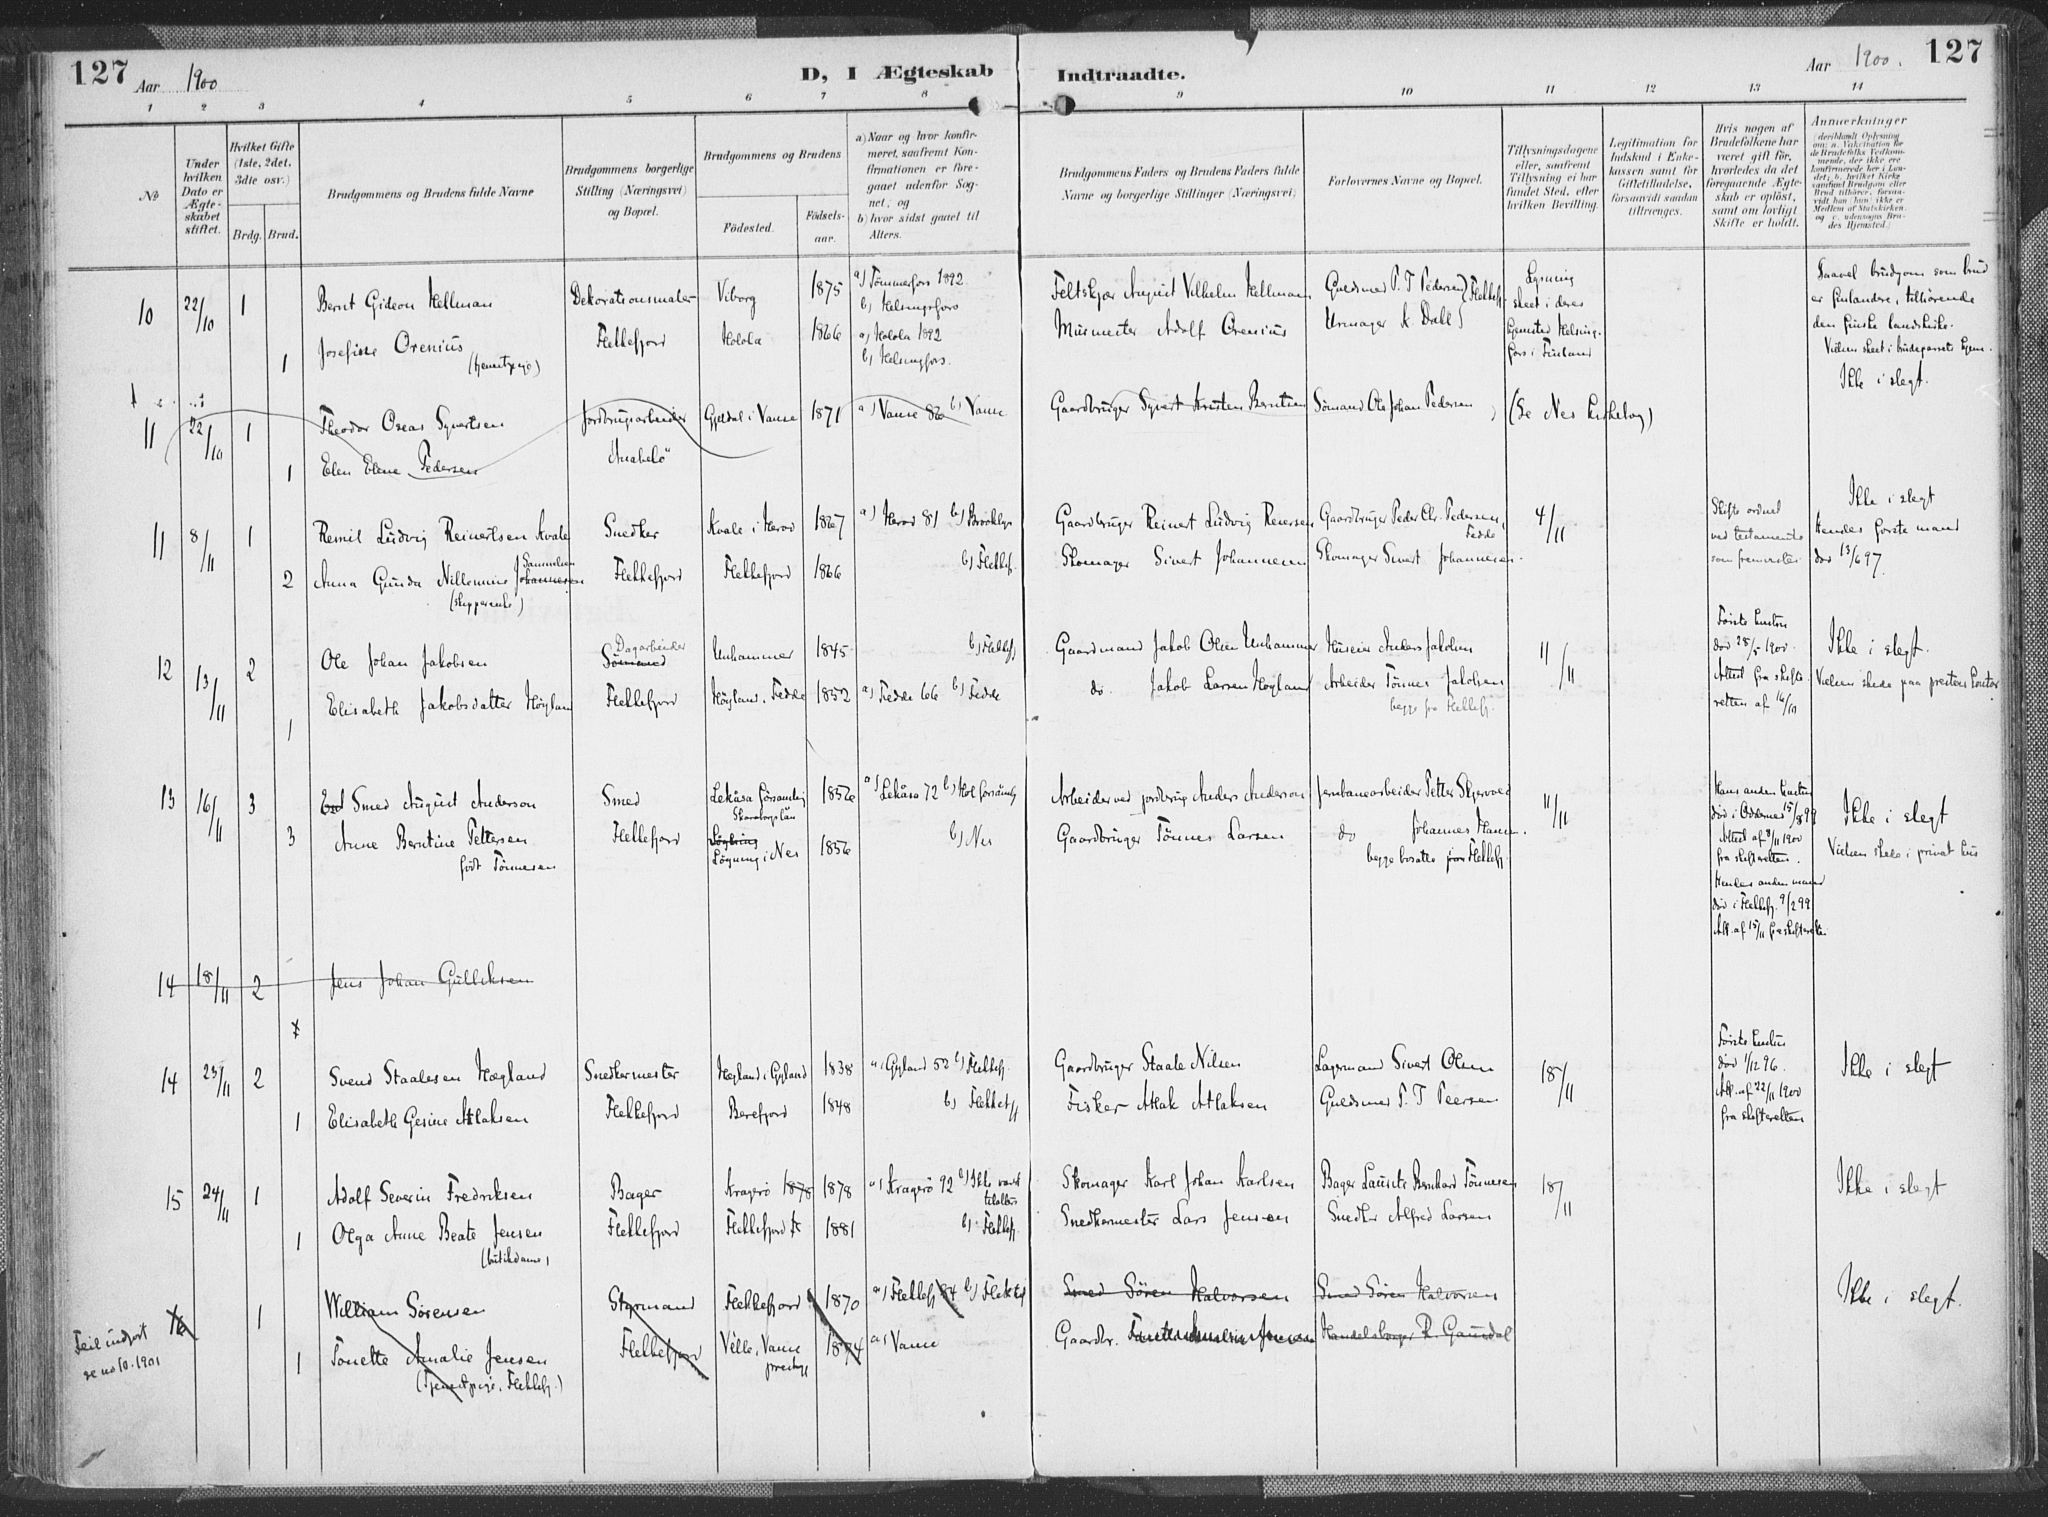 127 Aar 1900
D, I Ægteskab Indtraadte.
Aar 1900. 127
1 2 3 4 5 6 7 8 9 10 11 12 13 14
No
Under hvilken Dato er Ægteskabet stiftet.
Hvilket Gifte (1ste, 2det, 3die osv.)
Brdg. Brud.
Brudgommens og Brudens fulde Navne
Brudgommens borgerlige Stilling (Næringsvei) og Bopæl.
Brudgommens og Brudens
Födested.
Födselsaar.
a) Naar og hvor konfirmeret, saafremt Konfirmationen er foregaaet udenfor Sognet; og
b) hvor sidst gaaet til Alters.
Brudgommens Faders og Brudens Faders fulde Navne og borgerlige Stillinger (Næringsvei)
Forlovernes Navne og Bopæl.
Tillysningsdagene eller, saafremt Tillysning ei har fundet Sted, efter hvilken Bevilling.
Legitimation for Indskud i Enkekassen samt for Giftetilladelse, forsaavidt saadan tiltrænges.
Hvis nogen af Brudefolkene har været gift för, hvorledes da det foregaaende Ægteskab er oplöst, samt om lovligt Skifte er holdt.
Anmærkninger
(deriblandt Oplysning om: a. Vakcination for de Brudefolks Vedkommende, der ikke ere konfirmerede her i Landet; b. hvilket Kirkesamfund Brudgom eller Brud tilhörer, forsaavidt han (hun) ikke er Medlem af Statskirken, og c. udensogns Brudes Hjemsted.)
10 22/10 1 Bernt Gideon Hellman Dekorationsmaler Viborg 1875 a) Tömmerfors 1892 b) Helsingfors
Feltskjær August Vilhelm Hellmann Guldsmed P. T Pedersen } Flekkefj. Lysning skeet i deres hjemsted Helsingfors i Finland
Saavel brudgom som brud er finlændere, tilhörende den finske landskirke. Vielsen skeet i brudeparrets hjem. Ikke i slegt.
1 Josefine Orenius (tjenestpige) Flekkefjord Holola 1866 a) Holola 1892 b) Helsingfors.
Murmester Adolf Orenius Urmager K. Dall
11 22/10 1 Theodor Oseas Syvertsen Jordbrugsarbeider Gjeldal i Vanse 1871 a) Vanse 86 b) Vanse
Gaardbruger Syvert Kristen Berntsen Sömand Ole Johan Pedersen (Se Nes kirkebog)
1 Elen Elene Pedersen Anabelö
11 8/11 1 Remil Ludvig Reinertsen Kvale Snedker Kvale i Herad 1867 a) Herad 81 b) Brooklyn
Gaardbruger Reinert Ludvig Reiersen Gaardbruger Peder Chr. Pedersen, Fedde 4/11
Skifte ordnet ved testamente som fremvistes
Ikke i slegt
Hendes förste mand död 13/6 97.
2 Anna Gunda Nillennius Samuelsen Johannesen (skipperenke) Flekkefjord Flekkefjord 1866 b) Flekkef.
Skomager Sivert Johannesen Skomager Sivert Johannesen.
12 13/11 2 Ole Johan Jakobsen Dagarbeider Sömand Unhammer 1845 b) Flekkefj
Gaardmand Jakob Olsen Unhammer Huseier Anders Jakobsen 11/11
Förste hustru död 28/5 1900. Attest fra skifteretten af 16/10
Ikke i slegt.
Vielsen skede paa prestens kontor
1 Elisabeth Jakobsdatter Höyland Flekkefjord Höyland, Fedde 1852 a) Fedde 66 b) Fedde
do. Jakob Larsen Höyland Arbeider Tönnes Jakobsen begge fra Flekkefj.
13 16/11 3 Smed August Anderson Smed Lekåsa församling Skaraborgslän 1856 a) Lekåsa 72 b) Hol församl
Arbeider ved jordbrug Anders Anderson Jernbanearbeider Petter Skjerved 11/11
Hans anden hustru död i Oddernes 15/8 99 Attest af 3/11 1900 fra skifteretten.
Hendes anden mand död i Flekkefj. 9/2 99 Att. af 15/11 fra skifteretten
Ikke i slegt
Vielsen skede i privat hus
3 Anne Berntine Pettersen födt Tönnesen Flekkefjord Lögning i Nes 1856 b) Nes
Gaardbruger Tönnes Larsen do Johannes Hansen. begge bosatte paa Flekkefj
14 18/11 2 Jens Johan Gulliksen
14 23/11 2 Svend Staalesen Hægland Snedkermester Hægland i Gyland 1838 a) Gyland 52 b) Flekkefj.
Gaardbruger Staale Nilsen Lagermand Sivert Olsen 18/11
Förste hustru död 1/12 96. Att. af 22/11 1900 fra skifteretten
Ikke i slegt
1 Elisabeth Gesine Atlaksen Flekkefjord Berefjord 1848 b) Flekkefj
Fisker Atlak Atlaksen Guldsmed P. T Peersen
15 24/11 1 Adolf Severin Fredriksen Bager Kragerö 1878 1878 a) Kragerö 92 b) Ikke været tilalters
Skomager Karl Johan Karlsen Bager Laurits Bernhard Tönnesen 18/11
Ikke i slegt
1 Olga Anne Beate Jensen (butikdame) Flekkefjord Flekkefjord 1881 b) Flekkefj.
Snedkermester Lars Jensen Snedker Alfred Larsen
16 1 William Sörensen Styrmand Flekkefjord 1870 a) Flekkefj 84 b) Flekkefj
Smed Sören Halvorsen Smed Sören Halvorsen
Ikke i slegt.
Feil indfört se no 10. 1901
1 Tonette Amalie Jensen (Tjenestpige, Flekkefj.) Flekkefjord Velle, Vanse prestegj 1874 a) Vanse
Gaardbr. Handelsborger R. Gausdal